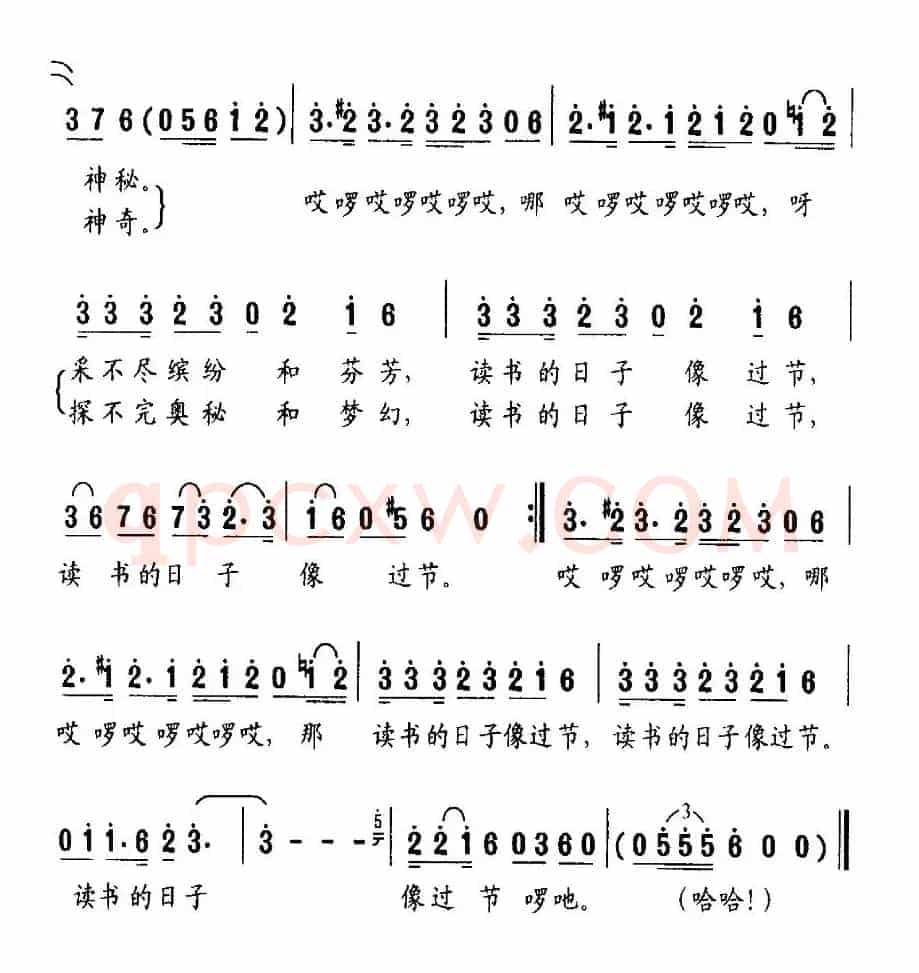 3 7 6 ( 0 5 6 1̇ 2̇ ) | 3̇ . #2̇ 3̇ . 2̇ 3̇ 2̇ 3̇ 0 6 | 2̇ . #1̇ 2̇ . 1̇ 2̇ 1̇ 2̇ 0 ♮1̇ 2̇ |
神秘。 哎啰哎啰哎啰哎,那 哎啰哎啰哎啰哎,呀
神奇。
3̇ 3̇ 3̇ 2̇ 3̇ 0 2̇ 1̇ 6 | 3̇ 3̇ 3̇ 2̇ 3̇ 0 2̇ 1̇ 6 |
采不尽缤纷 和 芬芳, 读书的日子 像 过节,
探不完奥秘 和 梦幻, 读书的日子 像 过节,
3 6 7 6 7 3̇ 2̇ . 3̇ | 1̇ 6 0 #5 6 0 :‖ 3̇ . #2̇ 3̇ . 2̇ 3̇ 2̇ 3̇ 0 6 |
读 书的日 子 像 过节。 哎 啰哎 啰哎啰哎,哪
qpcxw.COM
2̇ . #1̇ 2̇ . 1̇ 2̇ 1̇ 2̇ 0 ♮1̇ 2̇ | 3̇ 3̇ 3̇ 2̇ 3̇ 2̇ 1̇ 6 | 3̇ 3̇ 3̇ 2̇ 3̇ 2̇ 1̇ 6 |
哎 啰哎 啰哎啰哎,那 读书的日子像过节,读书的日子像过节。
0 1̇ 1̇ . 6 2̇ 3̇ . | 3̇ - - - 5̇ | 2̇ 2̇ 1̇ 6 0 3 6 0 | ( 0 5̇ 5̇ 5̇ 6̇ 0 0 ) ‖
3
读书的日子 像过 节 啰吔。 (哈哈!)